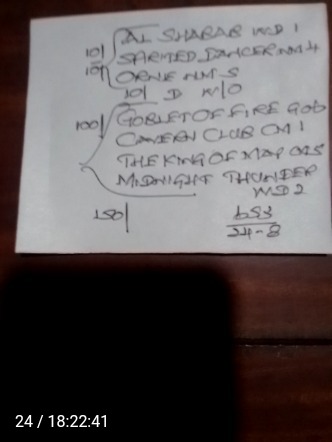 10/ AL SHABAB WD 1
SARTED DANCER NM 4
10/ ORNIE NM 5
10/ D W/O
100/ GOBLET OF FIRE GOD
CAVERN CLUB CM 1
THE KING OF MAY CM5
MIDNIGHT THUNDER
WD 2
150/
653
24-8
24 / 18:22:41